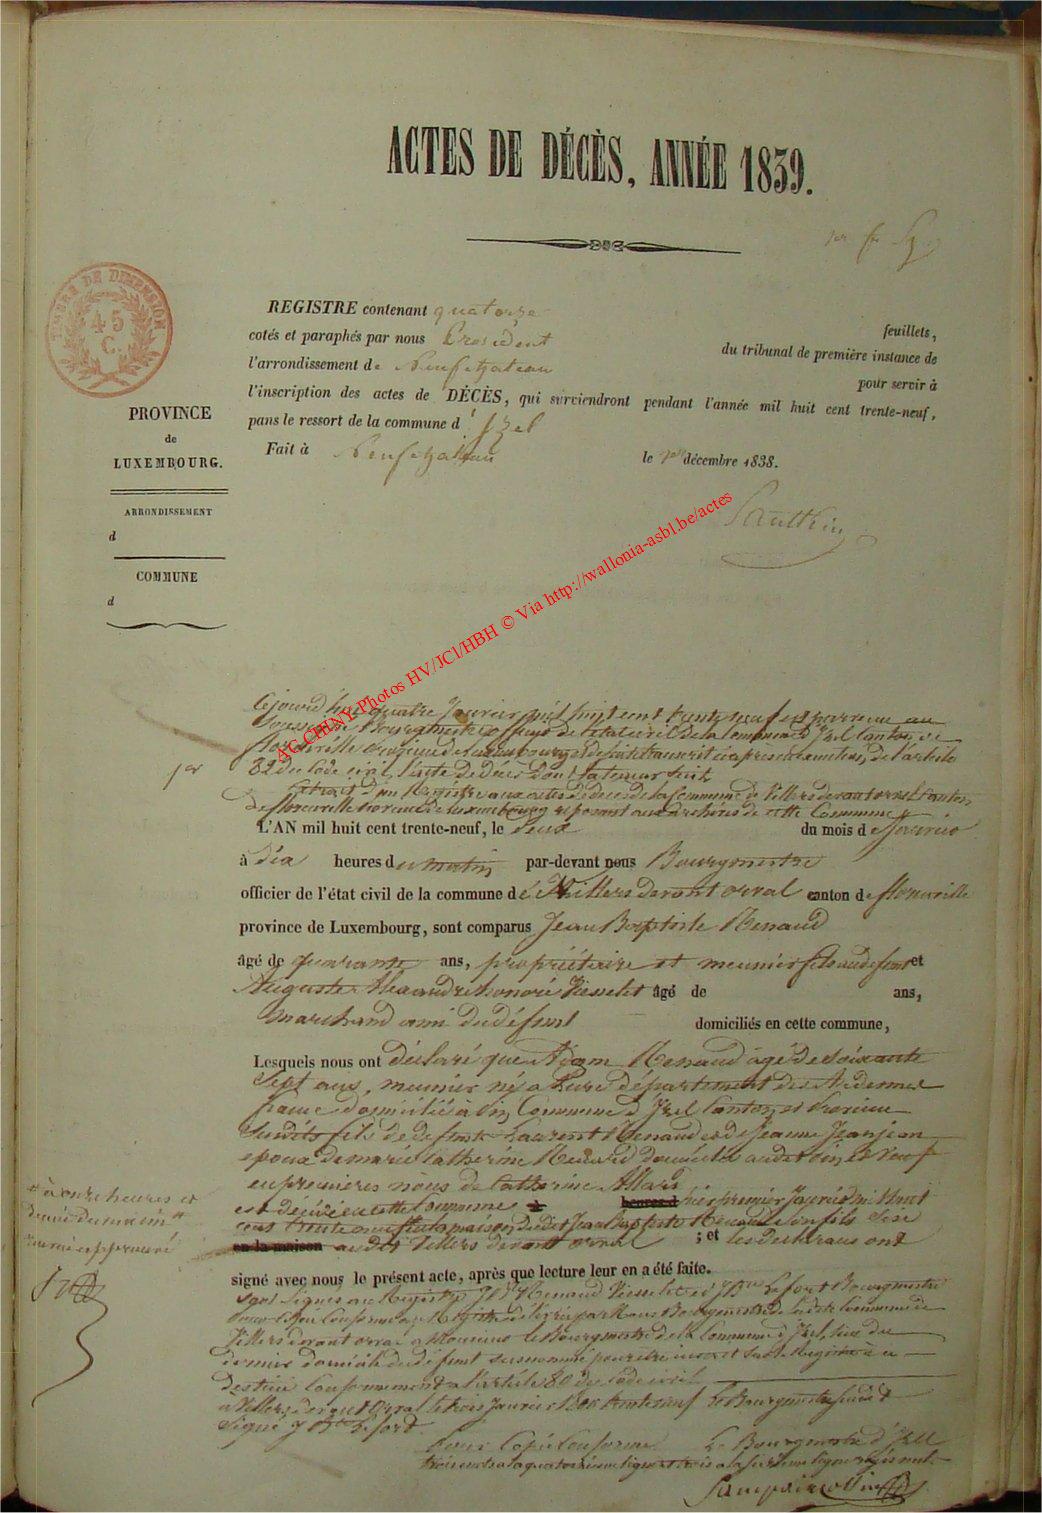 ACTES DE DÉCÈS, ANNÉE 1839.
1er f
TIMBRE DE DIMENSION
45
C.
REGISTRE contenant quatorze feuillets,
cotés et paraphés par nous Président du tribunal de première instance de
l'arrondissement de Neufchateau pour servir à
l'inscription des actes de DÉCÈS, qui surviendront pendant l'année mil huit cent trente-neuf,
pans le ressort de la commune d'Izel
Fait à Neufchateau le 1er décembre 1838.
PROVINCE
de
LUXEMBOURG.
ARRONDISSEMENT
d
COMMUNE
d
AG CHINY Photos HV/JCl/HBH © Via http://wallonia-asbl.be/actes
1er
Cejourd'hui quatre Janvier mil huit cent trente neuf est parvenu au
Soussigné Bourgmestre officier de l'etat civil de la Commune d'Izel Canton de
florenville province de Luxembourg et de suite transcrit ci après exécution de l'article
82 du Code civil, l'acte de Décès dont la teneur suit
Extrait d'un Registre aux actes de décès de la Commune de Villers devant orval Canton
de florenville province de Luxembourg reposant aux archives de cette Commune
L'AN mil huit cent trente-neuf, le deux du mois de Janvier
à dix heures du matin par-devant nous Bourgmestre
officier de l'état civil de la commune de Villers devant orval canton de florenville
province de Luxembourg, sont comparus Jean Baptiste Renaud
âgé de quarante ans, propriétaire et meunier fils audéfunt et
Auguste Alexandre honoré âgé de ans,
marchand ami du défunt domiciliés en cette commune,
Lesquels nous ont déclaré que Adam Renaud âgé de soixante
sept ans, meunier né a département des Ardennes
france domicilié à pin Commune d'Izel Canton et Province
susdits fils de defunts Laurent Renaud et de Jeanne Jeanjean
epoux de marie catherine Renard domiciliée audit pin et veuf
en premières noces de Catherine Allard
est décédé en cette Commune heures d hier premier Janvier mil huit
cent trente neuf en la maison dudit Jean Baptiste Renaud son fils sise
en la maison audit Villers devant orval ; et les déclarans ont
signé avec nous le présent acte, après que lecture leur en a été faite.
à onze heures et
demie du matin
approuvé
signés au Registre J. B. Renaud et J. Bte Lefort Bourgmestre
pour Copie Conforme au Registre délivrée par Nous Bourgmestre de ladite Commune de
Villers devant orval a Monsieur le Bourgmestre de la Commune d'Izel, lieu du
dernier domicile du défunt susnommé pour être inscrit sur le Registre à ce
destiné Conformement a l'article 80 du Code civil
a Villers devant Orval le trois Janvier 1800 trente neuf Le Bourgmestre susdit
signé J Bte Lefort.
Pour Copie Conforme Le Bourgmestre d'Izel